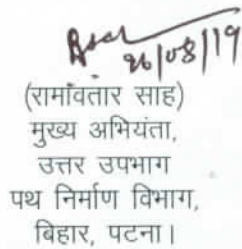 26/08/19
(रामांवतार साह)
मुख्य अभियंता,
उत्तर उपभाग
पथ निर्माण विभाग,
बिहार, पटना।